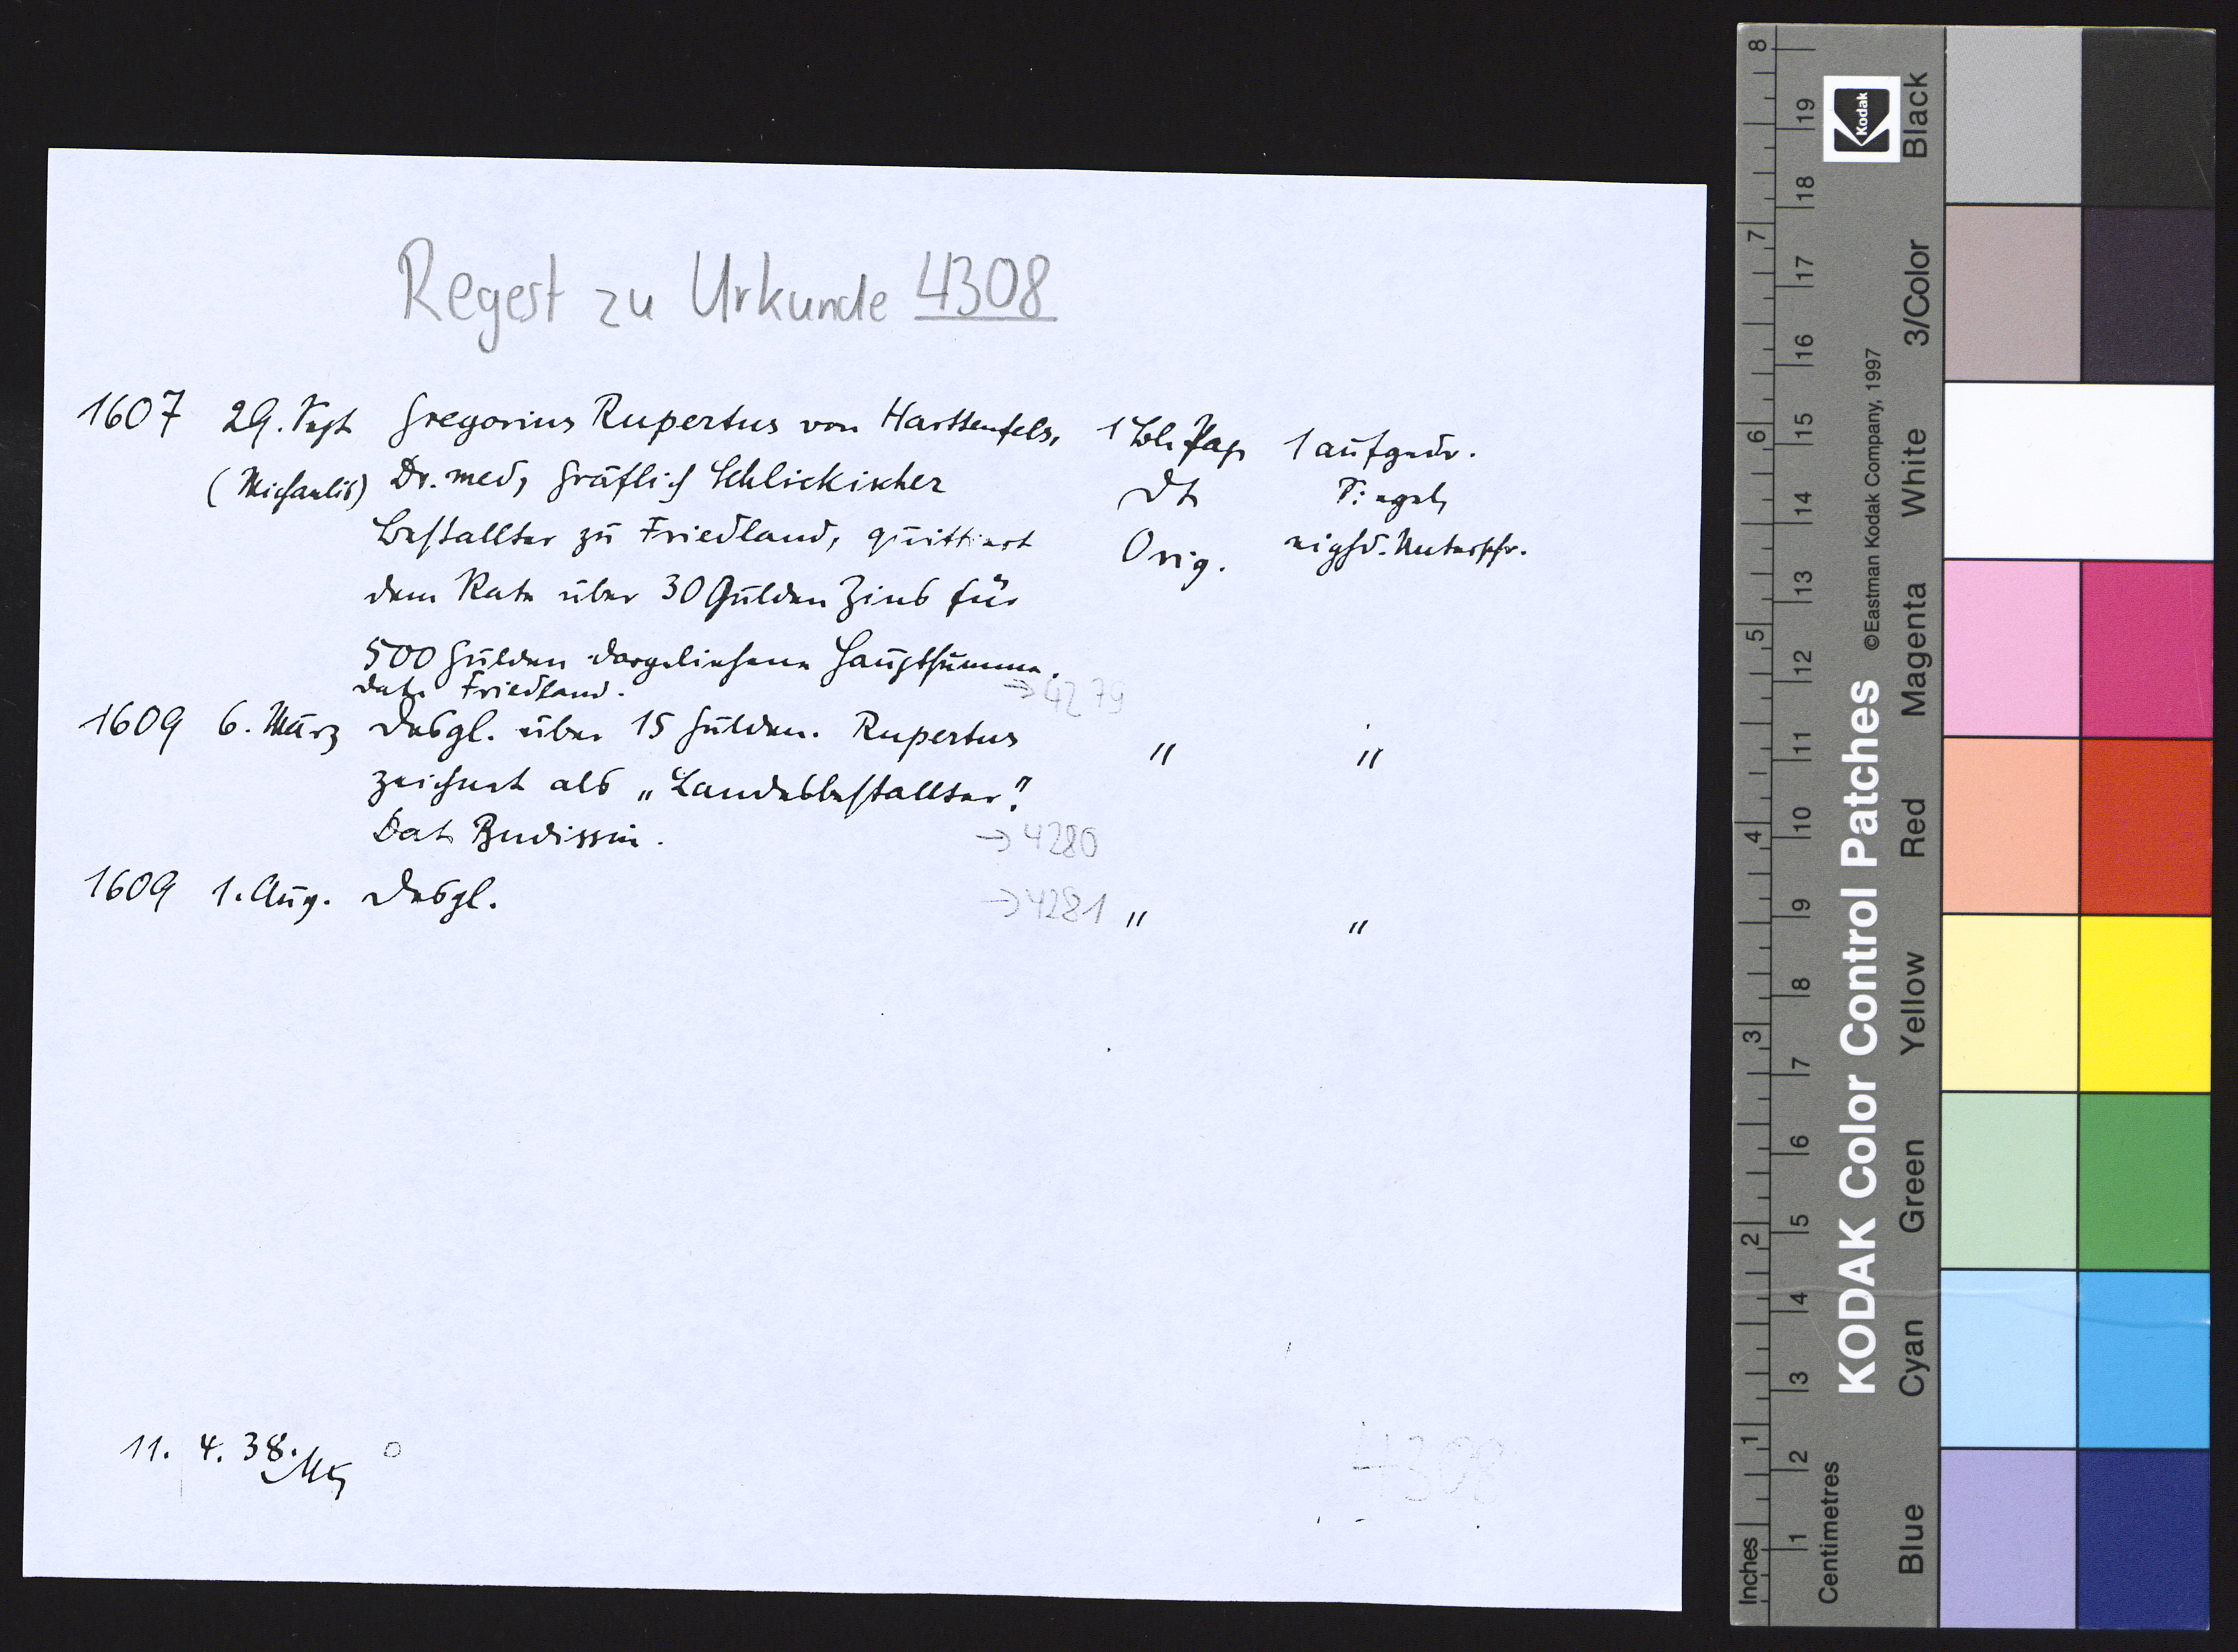 Regest zu Urkunde 4308
1607 29. Sept Gregorius Rupertus von Harttenfels, 1 Bl. Pap 1 aufgedr.
(Michaelis) Dr. med, gräflich Schlickischer Dt Siegel,
Bestallter zu Friedland, quittiert Orig. eighd. Unterschr.
dem Rate über 30 Gulden Zins für
500 Gulden dargeliehene Hauptsumme.
Dat. Friedland. → 4279
1609 6. März Desgl. über 15 Gulden. Rupertus " "
zeichnet als „Landesbestallter".
Dat. Budissin. → 4280
1609 1. Aug. Desgl. → 4281 " "
11. 4. 38.
4308
KODAK Color Control Patches ©Eastman Kodak Company, 1997
Kodak
Inches 1 2 3 4 5 6 7 8
Centimetres 1 2 3 4 5 6 7 8 9 10 11 12 13 14 15 16 17 18 19
Blue Cyan Green Yellow Red Magenta White 3/Color Black